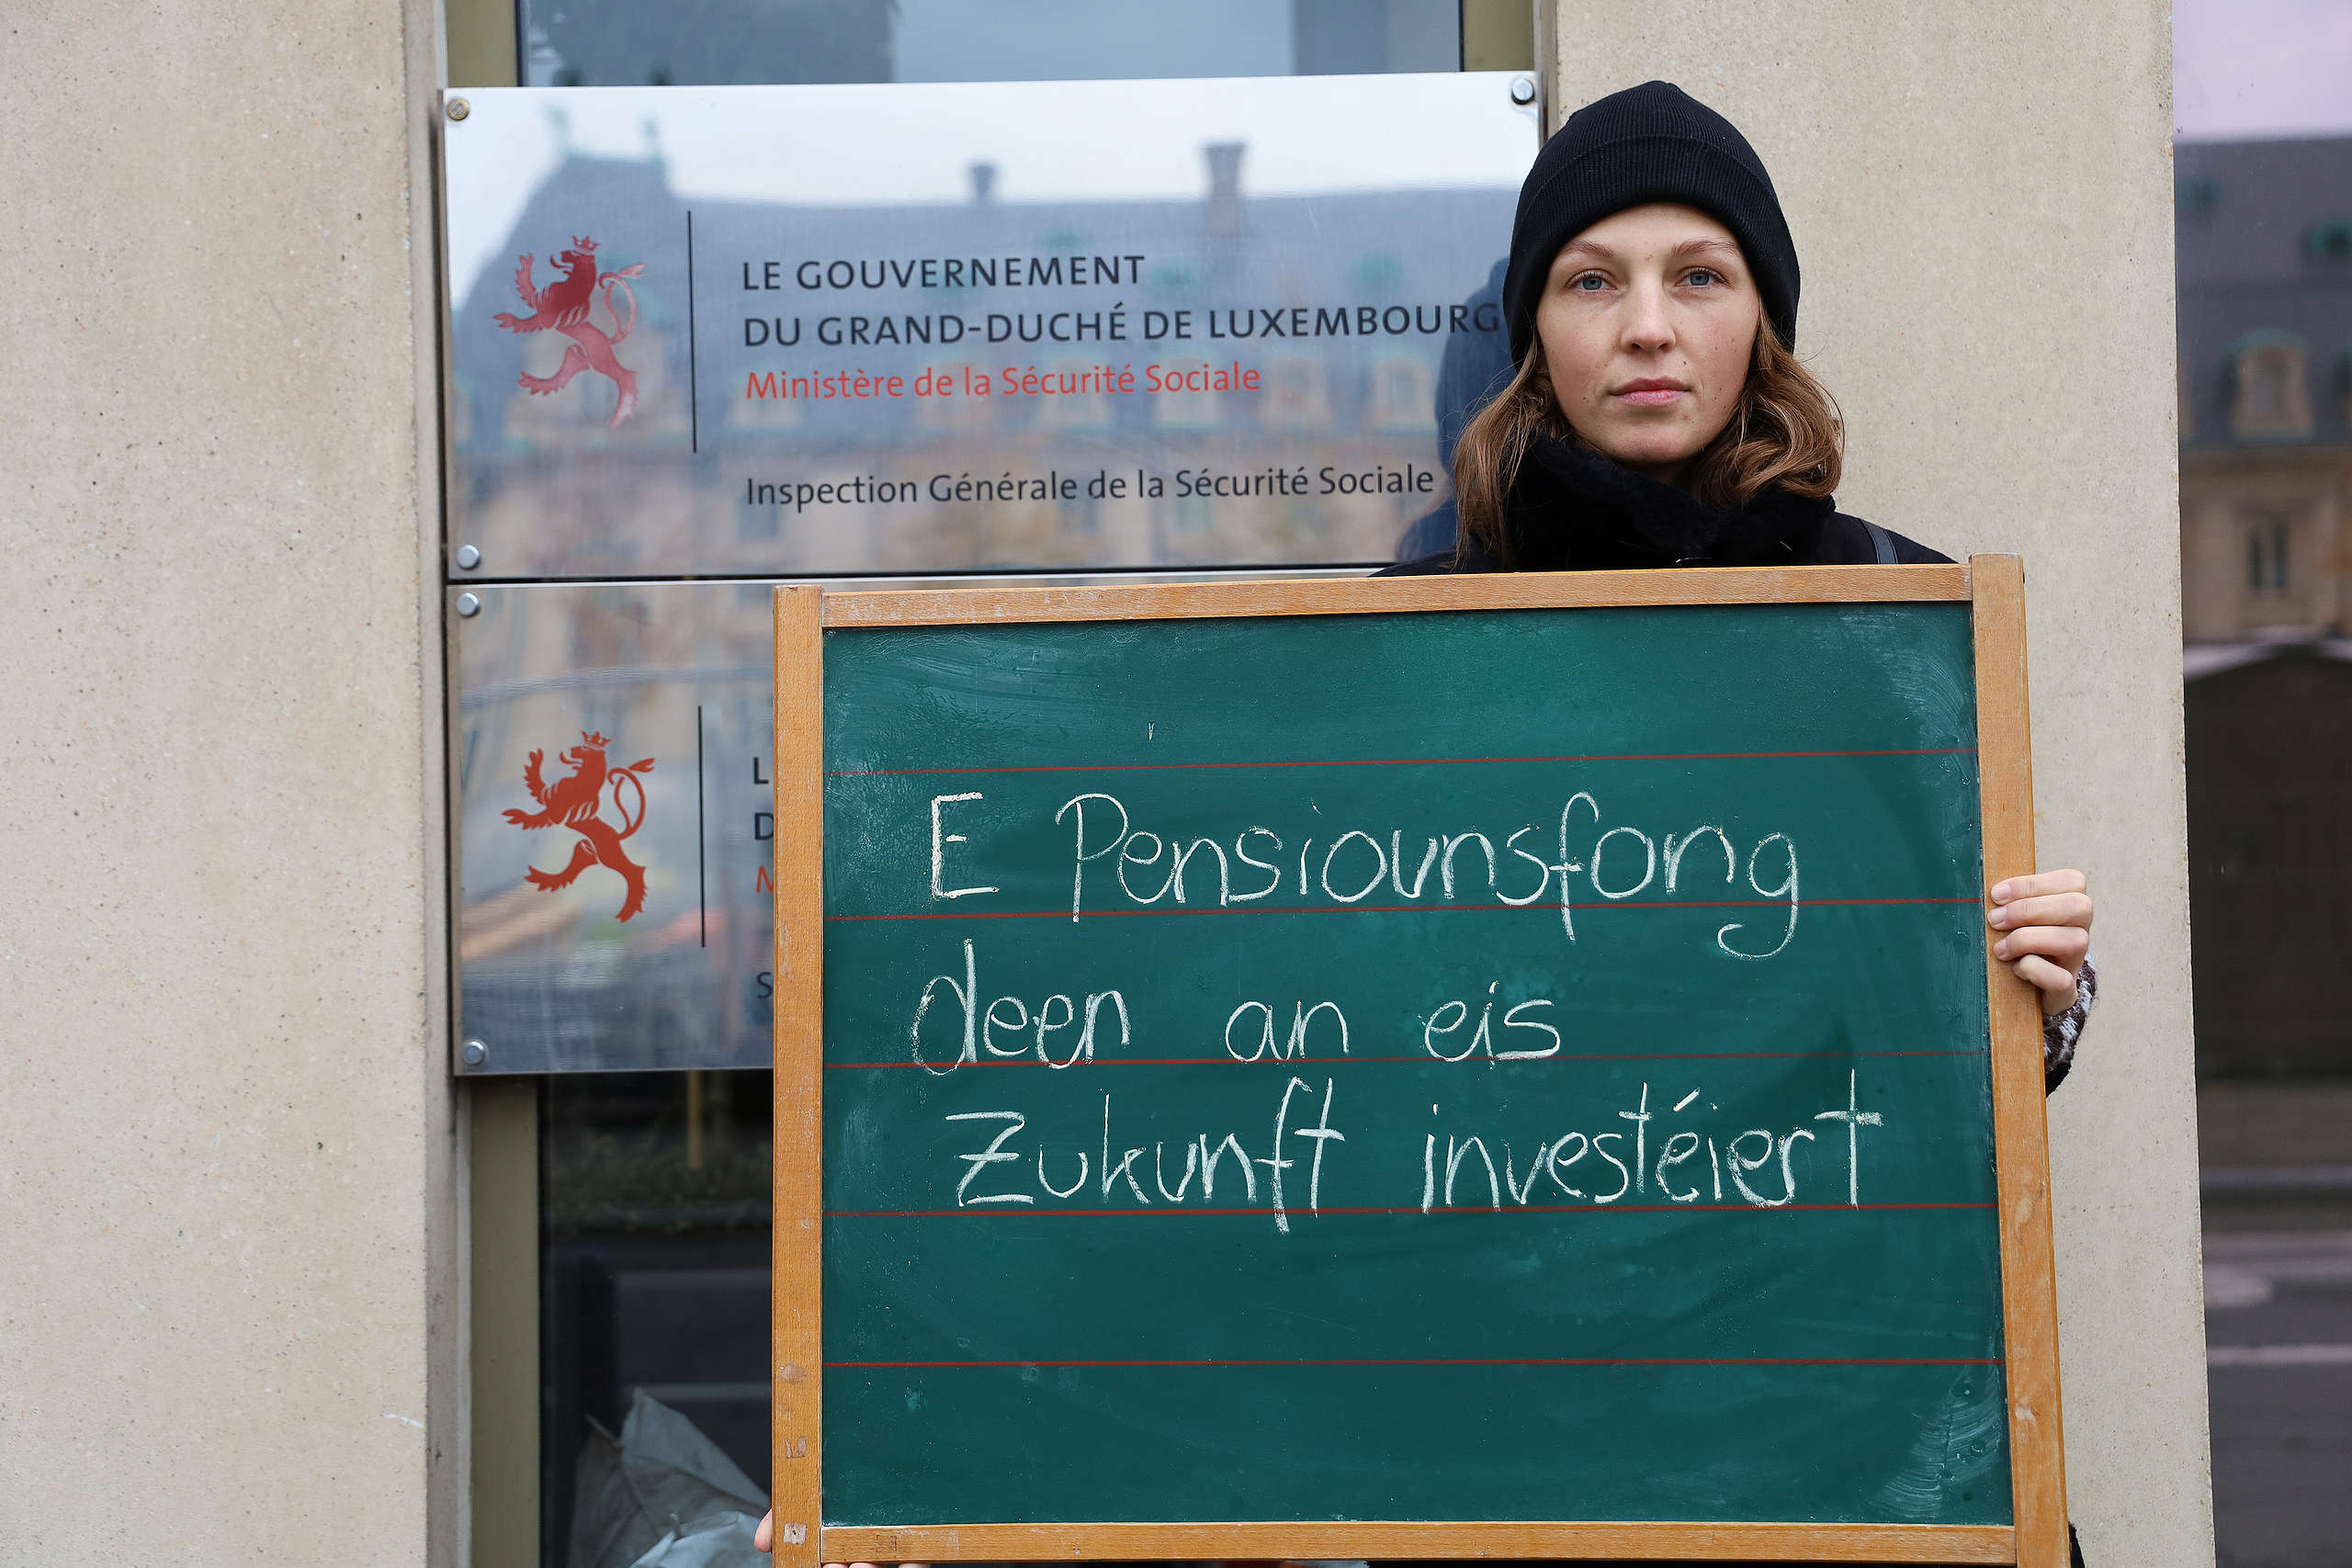 LE GOUVERNEMENT
DU GRAND-DUCHÉ DE LUXEMBOURG
Ministère de la Sécurité Sociale
Inspection Générale de la Sécurité Sociale
L
D
M
S
E Pensiounsfong
deen an eis
Zukunft investéiert